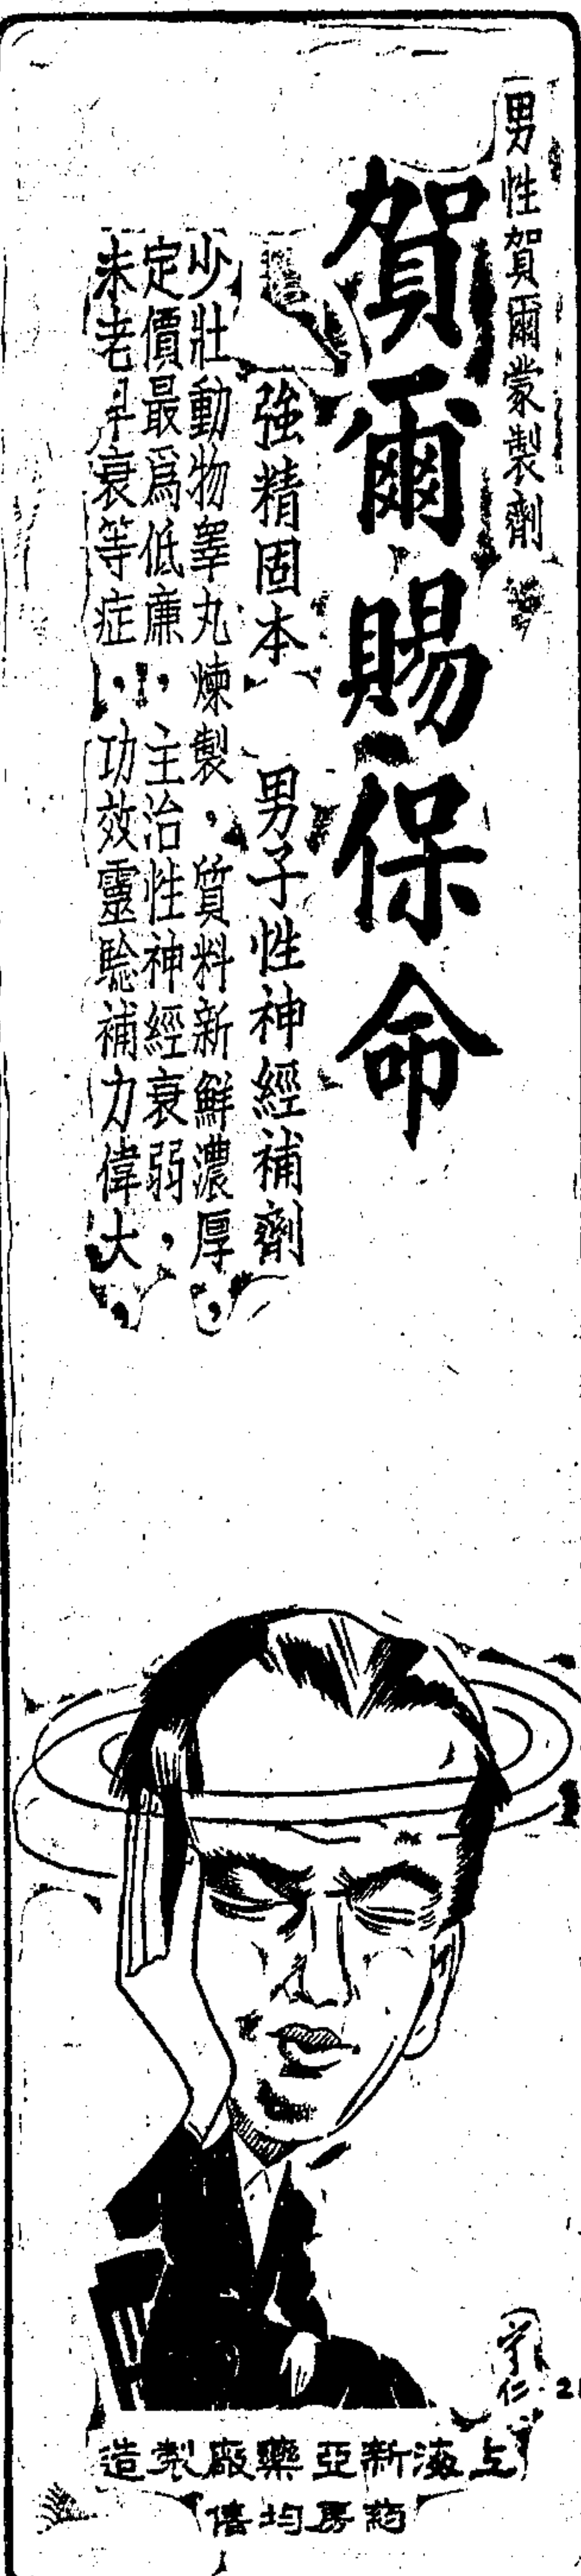 男性賀爾蒙製劑
賀爾賜保命
強精固本　男子性神經補劑
少壯動物睪丸煉製，質料新鮮濃厚，
定價最爲低廉，主治性神經衰弱，
未老早衰等症，功效靈騐補力偉大，
上海新亞藥廠製造
葯房均售